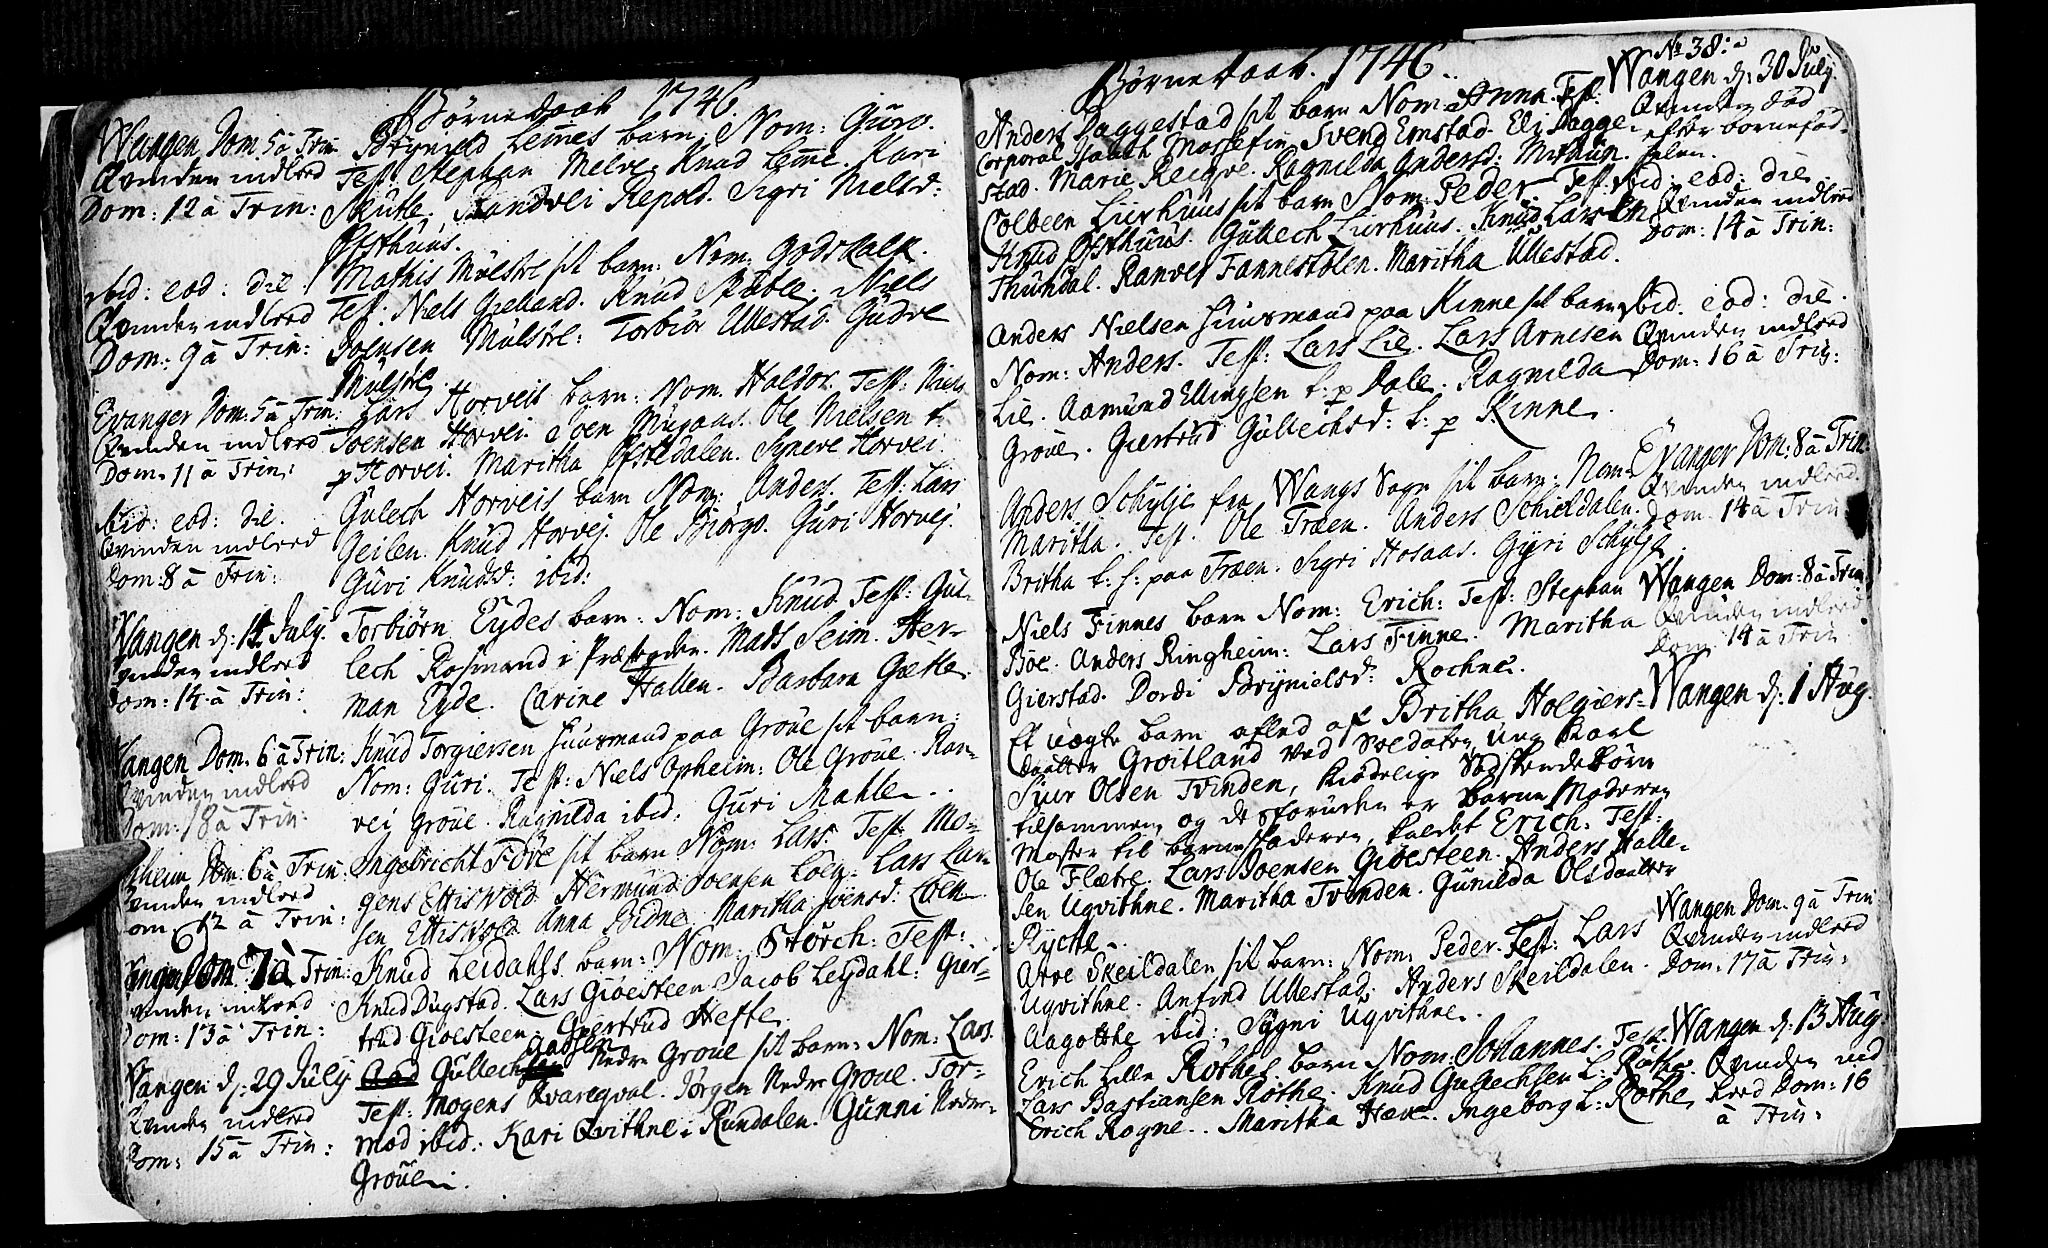 Børnedaab 1746.
Wangen Dom. 5 à Trin.
Qvinden indleed
Dom: 12 à Trin:
Brynield Lemes barn: Nom: Guro.
Test: Stephan Melve. Knud Leme. Kari
Skutle. Randvei Repold. Sigri Nielsd:
Østhuus.
ibid: eod: die.
Qvinden indleed
Dom: 9 à Trin:
Mathis Mølstre sit barn: Nom: Godskalk.
Test: Niels Gielland. Knud Næble. Niels
Joensen Mølstre: Torbiør Ullestad. Gudve
Mølstre.
Evanger Dom. 5 à Trin:
Qvinden indleed
Dom: 11 à Trin:
Lars Horveis barn: Nom. Haldor. Test: Niels
Joensen Horvei. Joen Mugaas. Ole Nielsen t.
p Horvei. Maritha Øfstedalen. Syneve Horvei.
ibid: eod: die.
Qvinden indleed
Dom: 8 à Trin:
Gulech Horveis barn Nom: Anders. Test: Lars
Geilen. Knud Horvej. Ole Biørgo. Guri Horvej.
Guri Knudsd: ibid:
Wangen d: 14 July.
Qvinden indleed
Dom: 14 à Trin:
Torbiørn Eydes barn: Nom: Knud. Test: Gul-
lech Rosmand i Præsgaden. Mads Seim. Her-
man Eyde. Carine Hallen. Barbara Giætle.
Wangen Dom. 6 à Trin:
Qvinden indleed
Dom: 18 à Trin:
Knud Torgiersen Huusmand paa Groue sit barn:
Nom: Guri. Test: Niels Opheim: Ole Groue. Ran-
vej Groue. Ragnilda ibid. Guri Mahle.
Dom: 6 à Trin:
Qvinden indleed
Dom: 12 à Trin:
Ingebricht Førre sit barn Nom: Lars. Test: Mo-
gens Ettisvold Hermund Joensen Løen. Lars Lar-
sen Ettisvold Anna Bidne. Maritha Joensd: Løen
Wangen Dom 7 à Trin:
Qvinden indleed
Dom: 13 à Trin:
Knud Leidahls barn: Nom: Størch: Test:
Knud Dugstad. Lars Giøesteen Jacob Leydahl: Gier-
trud Giøesteen. Giertrud Hefte.
Wangen d: 29 July
Qvinden indleed
Dom: 15 à Trin:
Gullech Nedre Groue sit barn: Nom: Lars.
Test: Mogens Qvareqval. Jørgen Nedre Groue. Tor-
mod ibid: Kari Qvithne i Rundalen. Gunni Nedre-
Groue.
No 38:
Børnedaab. 1746.
Wangen d: 30 July
Qvinden død
efter bornefød-
selen.
Anders Daggestad sit barn Nom: Anna. Test:
Corporal Haldth Mossefin. Svend Emstad. Eli Dagge-
stad. Marie Recqve. Ragnilda Andersd:
ibid: eod: die
Qvinden indleed
Dom: 14 à Trin:
Colbeen Lierhuus sit barn Nom: Peder Test:
Knud Østhuus. Gullech Lierhuus. Knud Larsen
Thundal. Ranvei Fannestølen. Maritha Ullestad.
ibid: eod: die.
Qvinden indleed
Dom: 16 à Trin:
Anders Nielsen Huusmand paa Kinne sit barn
Nom: Anders. Test: Lars Lie. Lars Arnesen
Lie. Aamund Ellingsen t. p Dale. Ragnilda
Groue. Giertrud Gullechsd: t: p Kinne.
Evanger Dom: 8 à Trin.
Qvinden indleed
Dom: 14 à Trin
Anders Schylje fra Wangs Sogn sit barn: Nom:
Maritha. Test. Ole Træen. Anders Schieldalen.
Britha t: h: paa Træen. Sigri Hosaas. Gyri Schylje.
Wangen Dom: 8 à Trin
Qvinden indleed
Dom: 14 à Trin
Niels Finnes barn Nom: Erich: Test: Stephan
Bøe. Anders Ringheim: Lars Finne. Maritha
Gierstad. Dordi Brynielsd: Rochne.
Wangen d: 1 Aug.
Et uægte barn aflod af Britha Holgiers-
daatter Grøitland ved Soldaten ung Karl
Siur Olsen Tvinden, kiødelige Sødskendebørn
tilsammen, og desforuden er barne Moderen
Moster til barnefaderen, kaldet Erich: Test:
Ole Flætre. Lars Joensen Giøesteen. Anders Halle-
sen Uqvithne. Maritha Tvinden. Gunilda Olsdaatter
Rychte.
Wangen Dom. 9 à Trin
Qvinden indleed
Dom: 17 à Trin:
Arve Skeildalen sit barn: Nom: Peder. Test: Lars
Uqvithne. Anfind Ullestad. Anders Skeildalen.
Aagothe ibid: Sygni Uqvithne.
Wangen d: 13 Aug:
Qvinden ind
leed Dom: 16
à Trin:
Erich Lille Rothes barn Nom: Johannes. Test:
Lars Bastiansen Rothe. Knud Gullechsen L: Rothe.
Erich Rogne. Maritha Hæve. Ingeborg L: Rothe,